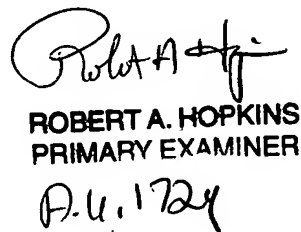 Robert A Hopkins
ROBERT A. HOPKINS
PRIMARY EXAMINER
A.U. 1724